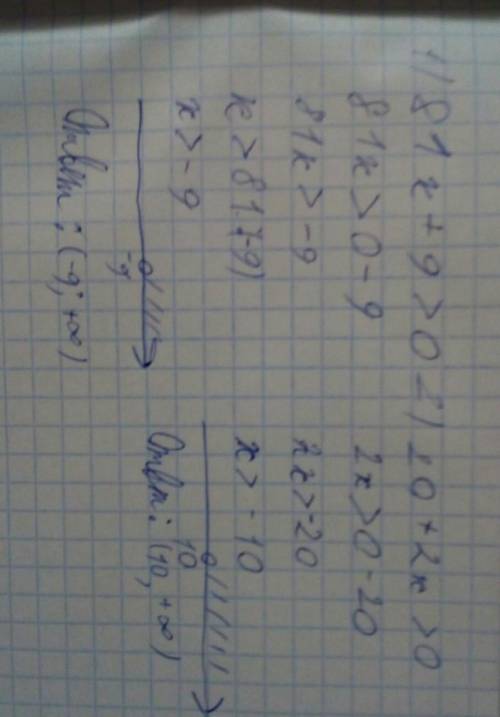 1) 81x + 9 > 0
81x > 0 - 9
81x > -9
x > 81:(-9)
x > -9
-9
Ответ: (-9; +∞)
2) 20 + 2x > 0
2x > 0 - 20
2x > -20
x > -10
10
Ответ: (10, +∞)